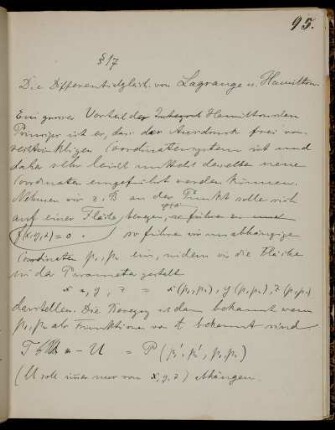 95.
§17
Die Differentialgleich. von Lagrange u. Hamilton.
Ein grosser Vortheil des Hamiltonschen
Princips ist es, dass der Ausdruck frei von
Coordinatensystem ist und
daher sehr leicht mittels desselben neue
Coordinaten eingeführt werden können.
Nehmen wir z. B. an der Punkt solle sich
auf einer Fläche bewegen, so führen
f(x,y,z)=0. so führen wir unabhängige
Coordinaten p₁, p₂ ein, indem wir die Fläche
in der Parametergestalt
x, y, z = x(p₁,p₂), y(p₁,p₂), z(p₁,p₂)
darstellen. Die Bewegung ist dann bekannt wenn
p₁, p₂ als Funktionen von t bekannt sind
T - U = P(p₁', p₂', p₁, p₂)
(U solle immer nur von x, y, z) abhängen.